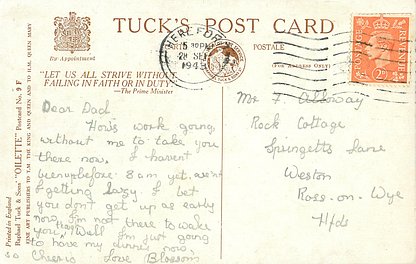 TUCK'S POST CARD
CARTE POSTALE
By Appointment
(For Address Only)
"LET US ALL STRIVE WITHOUT
FAILING IN FAITH OR IN DUTY."
—The Prime Minister
HEREFORD
5 30 PM
28 SEP
194
POSTAGE
REVENUE
2D
Printed in England
Raphael Tuck & Sons' "OILETTE" Postcard No. 9 F
FINE ART PUBLISHERS TO T.M. THE KING AND QUEEN AND TO H.M. QUEEN MARY
Dear Dad
Hows work going
without me to take you
there now. I havent
been up before 8am yet. aren't
I getting lazy. I bet
you don't get up as early
now I'm not there to wake
you, Well I'm just going
to have my dinner now
so Cheerio Love Blossom
Mr F. Alloway
Rock Cottage
Springetts Lane
Weston
Ross-on-Wye
Hfds